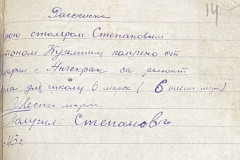 14
Расписка
мною столяром Степановым
Кузьмичом получено от
с Анчекрак за ремонт
для школы 6 марок (6 шесть марок)
Шесть марок
Получил: Степанов
43 г.